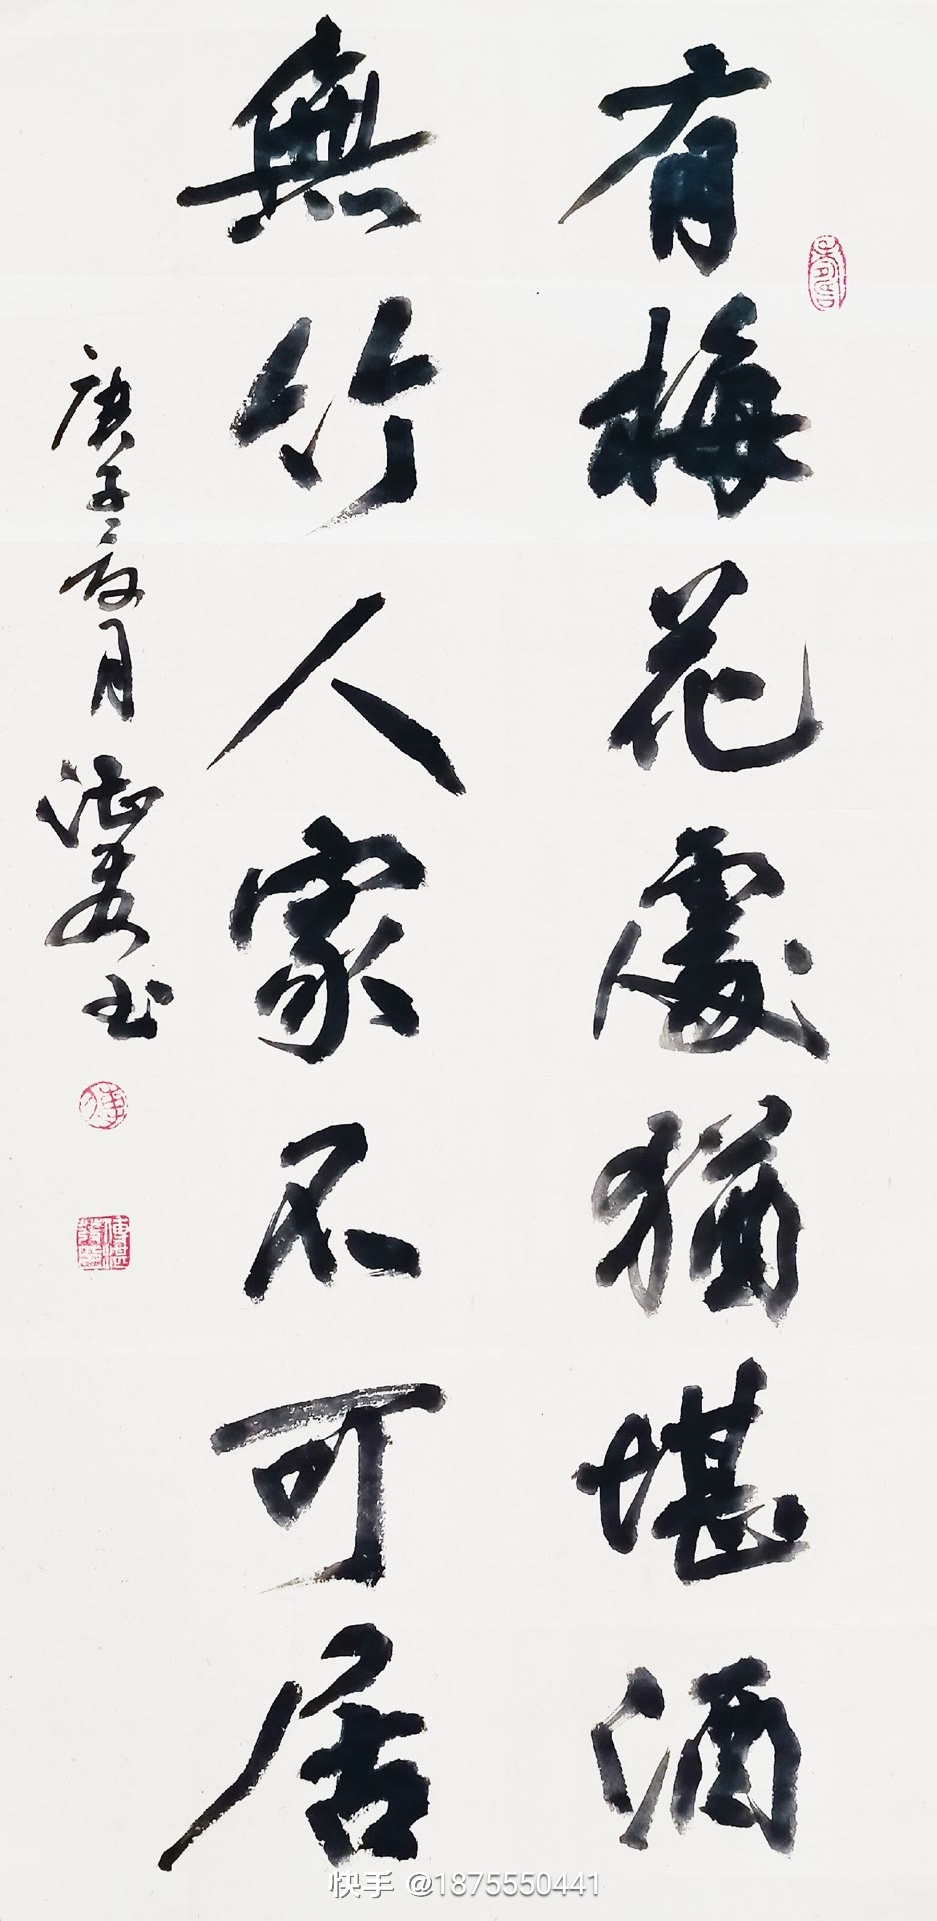 有梅花處猶堪酒
無竹人家不可居
庚子夏月 書
快手 @1875550441